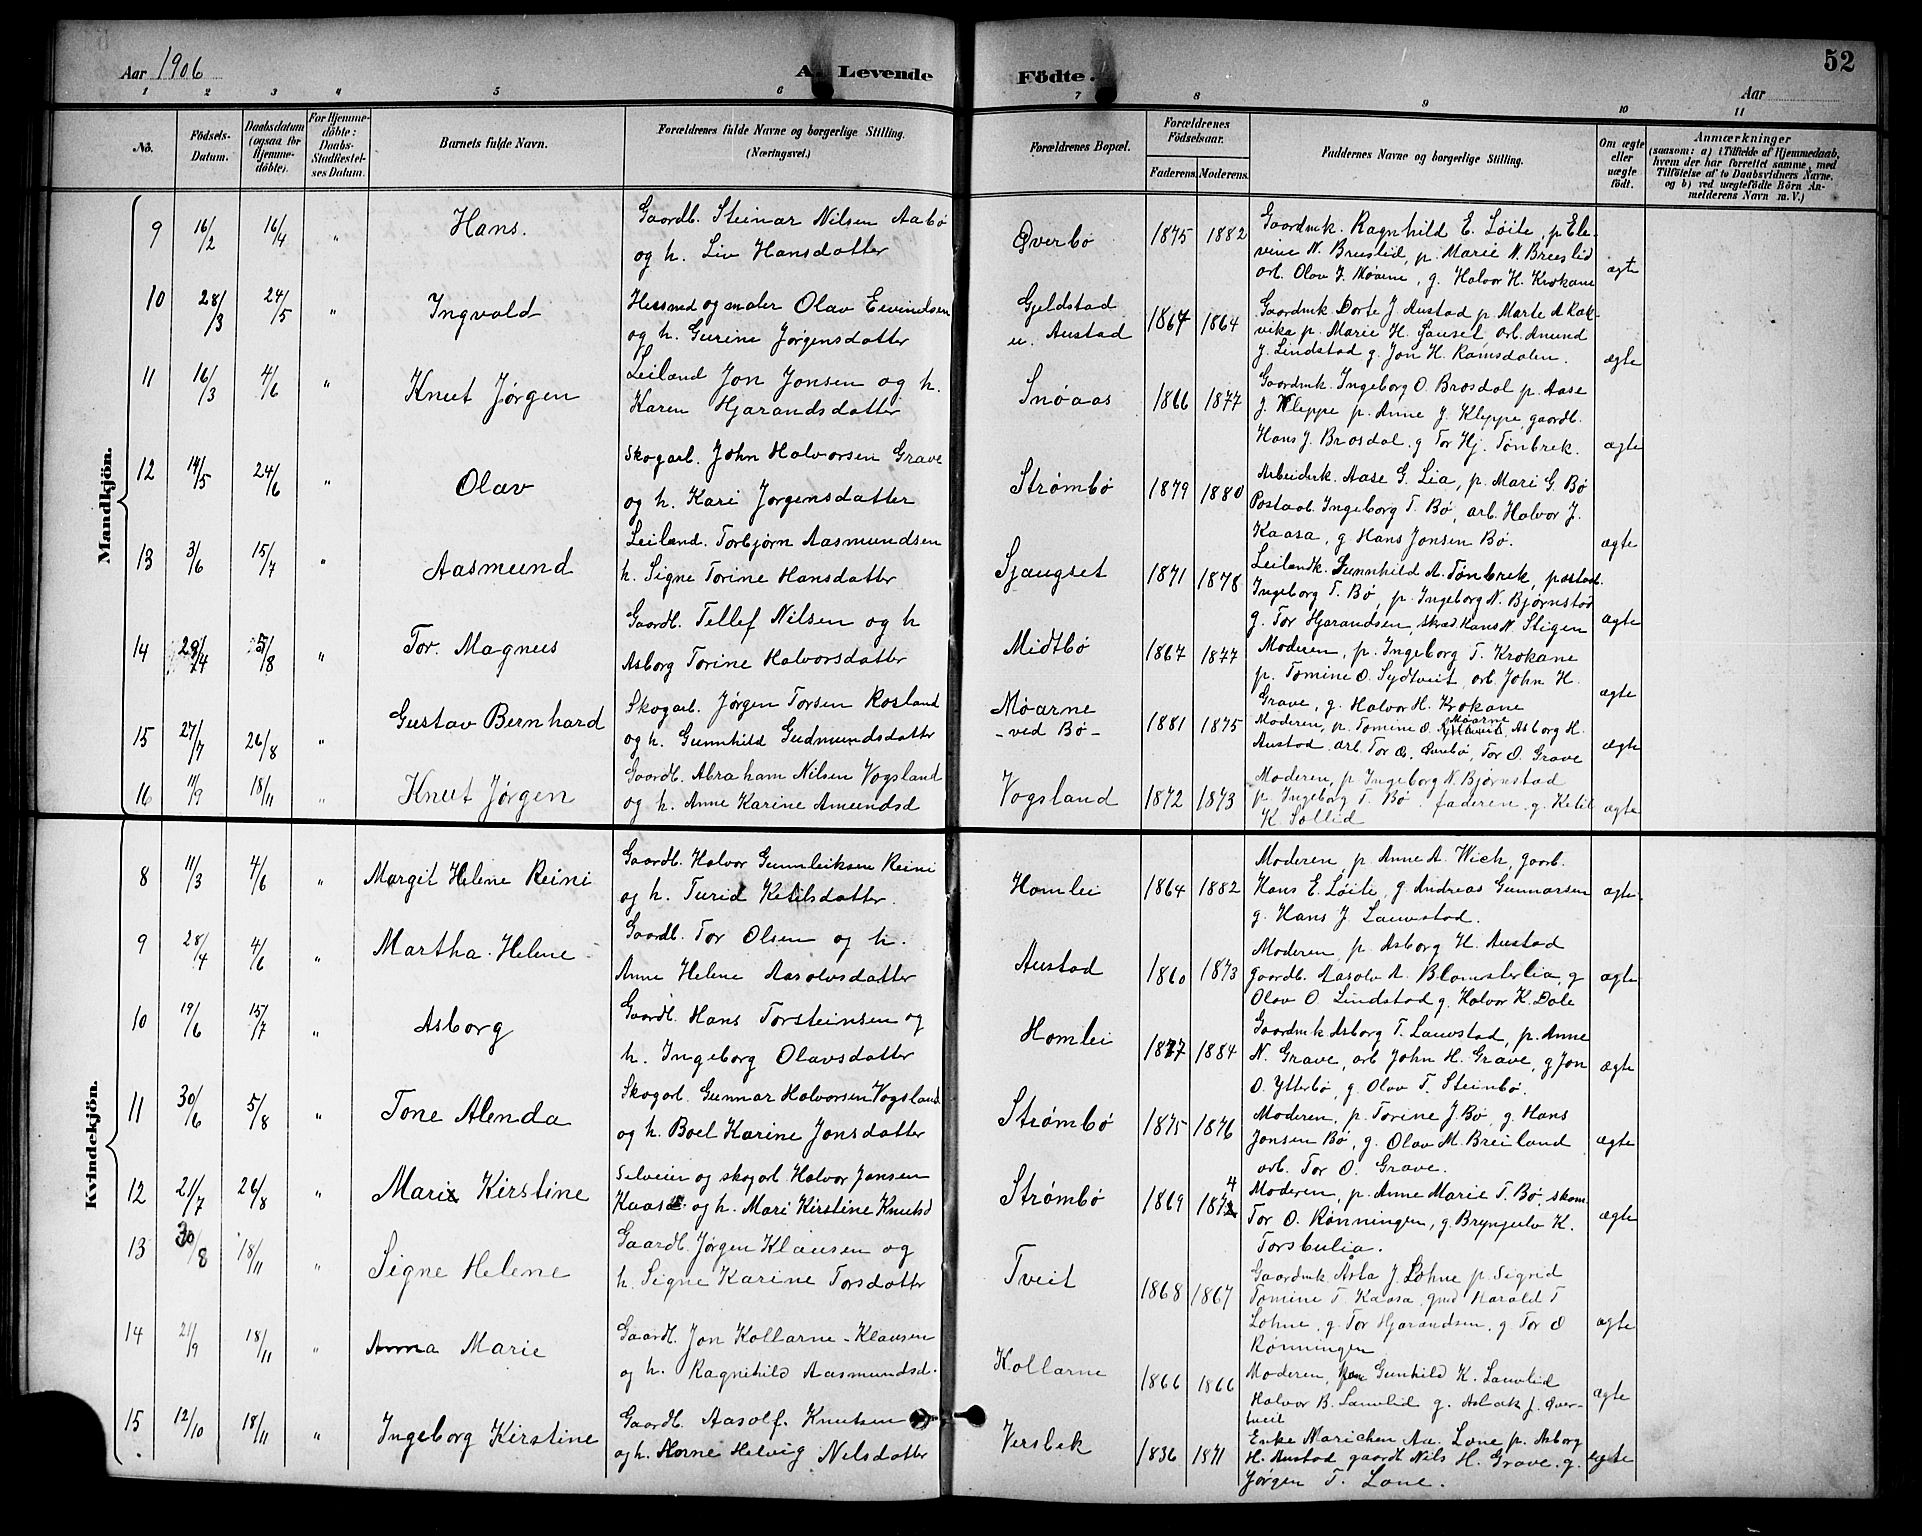 Aar 1906
A. Levende Fødte.
52
Aar
1 2 3 4 5 6 7 8 9 10 11
No. Födsels-Datum. Daabsdatum (ogsaa for Hjemmedöbte). For Hjemmedöbte: Daabs-Stadfæstelses Datum. Barnets fulde Navn. Forældrenes fulde Navne og borgerlige Stilling. (Næringsvei.) Forældrenes Bopæl. Forældrenes Födselsaar. Faderens. Moderens. Faddernes Navne og borgerlige Stilling. Om ægte eller uægte födt. Anmærkninger (saasom: a) i Tilfælde af Hjemmedaab, hvem der har forrettet samme, med Tilföielse af to Daabsvidners Navne, og b) ved uægtefödte Börn Anmelderens Navn m. V.)
Mandkjön.
9 16/2 16/4 " Hans. Gaardb. Steinar Nilsen Aabø
og h. Liv Hansdatter
Øverbø 1875 1882 Gaardmk. Ragnhild E. Løite, p Ele-
vine N. Bruslid, p. Marie N. Bruslid
arb. Olav J. Møarne, g. Halvor H. Krokane
ægte
10 28/3 24/5 " Ingvald Husmed og maler Olav Eivindsen
og h. Gurine Jørgensdatter
Gjeldstad
u. Austad 1867 1864 Gaardmk Dorte J Austad p Marte A Rak-
vika p. Marie H. Sauset arb. Amund
J. Lindstad g. Jon H. Ramsdalen.
ægte
11 16/3 4/6 " Knut Jørgen Leiland Jon Jonsen og h.
Karen Hjarandsdatter
Snøaas 1866 1877 Gaardmk. Ingeborg O. Brosdal p. Aase
J. Kleppe p. Anne J. Kleppe, gaardb.
Hans J. Brosdal. g Tor Hj. Tønbrek.
ægte
12 14/5 24/6 " Olav Skogarb. John Halvorsen Grave
og h. Kari Jørgensdatter
Strømbø 1879 1880 Arbeiderk. Aase G. Lia, p. Mari G. Bø
Postaab. Ingeborg T. Bø, arb. Halvor J.
Kaasa, g Hans Jonsen Bø.
ægte
13 3/6 15/7 " Aasmund Leiland. Torbjørn Aasmundsen
h. Signe Torine Hansdatter
Sjaugset 1871 1878 Leilandk. Gunnhild A. Tønbrek, postaab.
Ingeborg T. Bø, p. Ingeborg N. Bjørnstad
g. Tor Hjarandsen, skræd. Hans N. Stigen
ægte
14 29/4 5/8 " Tor. Magnus Gaardb. Tellef Nilsen og h
Asborg Torine Halvorsdatter
Midtbø 1867 1877 Moderen, p. Ingeborg T. Krokane
p. Tomine O. Sydtveit, arb. John H.
Grave, g. Halvor H. Krokane
ægte
15 27/7 26/8 " Gustav Bernhard Skogarb. Jørgen Torsen Rosland
og h. Gunnhild Gudmundsdatter
Møarne
- ved Bø - 1881 1875 Moderen, p. Tomine O. Møarne, Asborg H.
Austad, arb. Tor O. Øverbø, Tor O. Grave
ægte
16 11/9 18/11 " Knut Jørgen Gaardb. Abraham Nilsen Vogsland
og h. Anne Karine Amundsd
Vogsland 1872 1873 Moderen, p Ingeborg N. Bjørnstad
p. Ingeborg T. Bø. faderen. g. Ketil
K. Sollid
ægte
Kvindekjön.
8 11/3 4/6 " Margit Helene Reini Gaardb. Halvor Gunnleiksen Reini
og h. Turid Ketilsdatter.
Homlei 1864 1882 Moderen p. Anne A. Wick, gaarb.
Hans E. Løite, g. Andreas Gunnarsen
g. Hans J Lauvstad.
ægte
9 28/4 4/6 " Martha. Helene Gaardb. Tor Olsen og h.
Anne Helene Aasolvsdatter
Austad 1860 1873 Moderen, p. Asborg H. Austad
Gaardb. Aasolv A. Blomsterlia, g
Olav O. Lindstad g. Halvor K. Dale
ægte
10 19/6 15/7 " Asborg Gaardb. Hans Torsteinsen og
h. Ingeborg Olavsdatter
Homlei 1877 1884 Gaardmk Asborg T. Lauvstad, p. Anne
N. Grave, arb John H. Grave, g Jon
O. Ytterbø, g. Olav T. Steinbø.
ægte
11 30/6 5/8 " Tone Alenda Skogarb. Gunnar Halvorsen Vogsland
og h. Boel Karine Jonsdatter
Strømbø 1875 1876 Moderen, p. Torine J. Bø, g. Hans
Jonsen Bø, g. Olav M. Breiland
arb. Tor O. Grave.
ægte
12 21/7 26/8 " Mari Kirstine Selveier og skogarb Halvor Jonsen
Kaasa og h. Mari Kirstine Knutsd
Strømbø 1869 1874 Moderen, p. Anne Marie T. Bø, skom.
Tor O. Rønningen, g. Brynjulv K.
Torsbulia.
ægte
13 30/8 18/11 " Signe Helene Gaardb. Jørgen Klausen og
h. Signe Karine Torsdatter
Tveit 1868 1867 Gaardmk Asta J. Lohne p. Sigrid
Tomine T Kaasa, gmd Harald T
Lohne, g. Tor Hjarandsen, g. Tor O
Rønningen
ægte
14 21/9 18/11 " Anna Marie Gaardb. Jon Kollarne - Klausen
og h. Ragnhild Aasmundsd.
Kollarne 1866 1866 Moderen, Gunhild K. Lauvlid
Halvor B. Lauvlid g. Aslak J. Øver-
tveit
ægte
15 12/10 18/11 " Ingeborg Kirstine Gaardb. Aasolf. Knutsen
og h. Horne Helvig Nilsdatter
Versbek 1836 1871 Enke Marichen Aa. Lone p. Asborg
H. Austad gaardb Nils H. Grave. g.
Jørgen T. Lone.
ægte